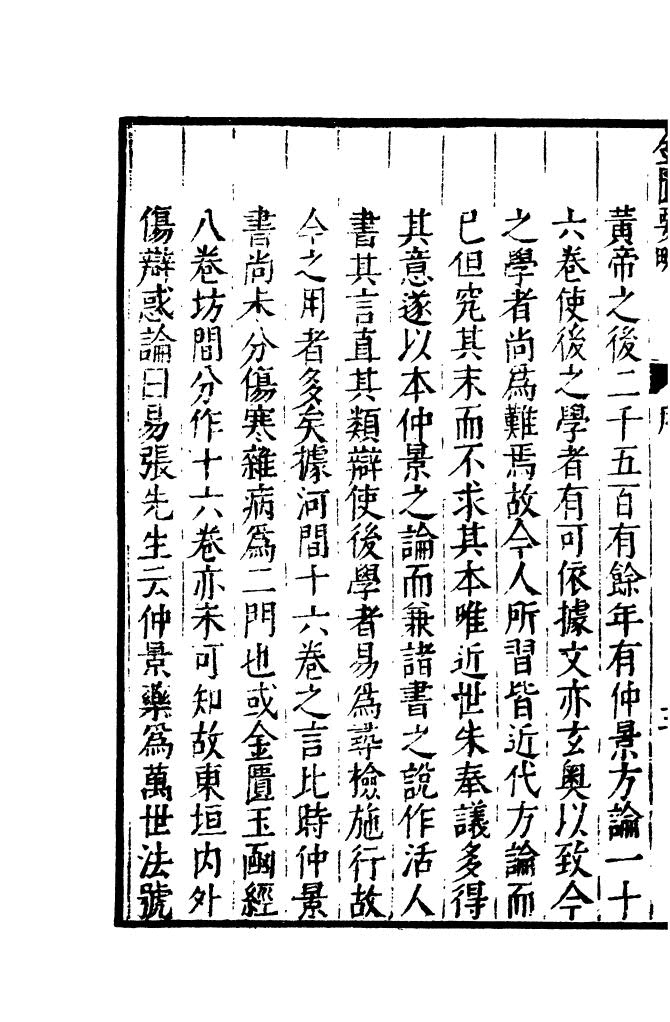 金匱要略 序 二
黃帝之後二千五百有餘年有仲景方論一十
六卷使後之學者有可依據文亦玄奧以致今
之學者尚為難焉故今人所習皆近代方論而
已但究其末而不求其本唯近世朱奉議多得
其意遂以本仲景之論而兼諸書之說作活人
書其言直其類辯使後學者易為尋檢施行故
今之用者多矣據河間十六卷之言比時仲景
書尚未分傷寒雜病為二門也或金匱玉函經
八卷坊間分作十六卷亦未可知故東垣內外
傷辯惑論曰易張先生云仲景藥為萬世法號